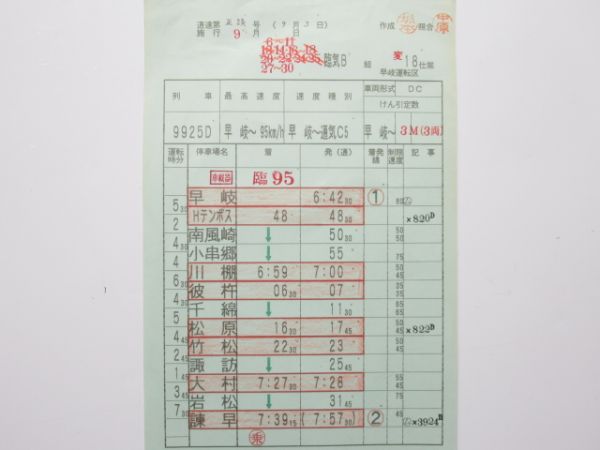 道達第 正誤 号 (9月3日)
施行 9月 日
作成 照合
6~11
27~30
臨気B
組 変18仕業
早岐運転区
列 車 最高速度 速度種別 車両形式 DC
けん引定数
9925D 早 岐~ 95km/h 早 岐~通気C5 早 岐~ 3M(3両)
運転時分 停車場名 着 発(通) 着発線 制限速度 記事
臨95
早岐 6:42 30 ① 80
5 30
Hテンボス 48 48 30 ×820D
2
南風崎 ↓ 50 30
4 30
小串郷 ↓ 55 75
4
川棚 6:59 7:00
6 30
彼杵 06 30 07
4 30
千綿 ↓ 11 30
5
松原 16 30 17 45 ×822D
4 45
竹松 22 30 23
2 45
諏訪 ↓ 25 45
1 45
大村 7:27 30 7:28
3 45
岩松 ↓ 31 45
7 30
諫早 7:39 15 (7:57 30) ② ×3924D
乗